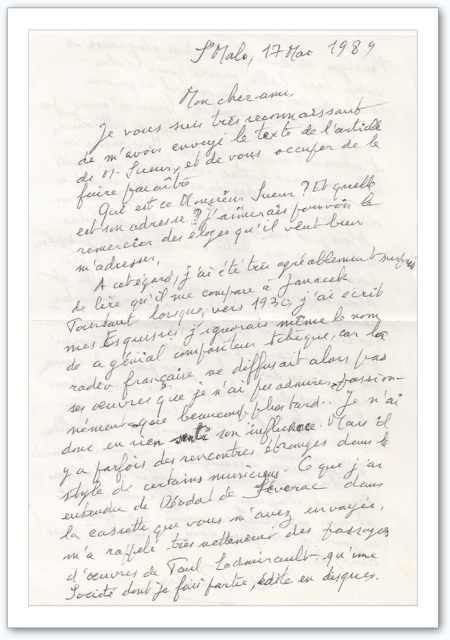 St Malo, 17 Mai 1989
Mon cher ami,
Je vous suis très reconnaissant
de m'avoir envoyé le texte de l'article
de M. Sueur, et de vous occuper de le
faire paraître
Qui est ce Monsieur Sueur ? Et quelle
est son adresse ? J'aimerais pouvoir le
remercier des éloges qu'il veut bien
m'adresser.
A cet égard, j'ai été très agréablement surpris
de lire qu'il me compare à Janacek
Pourtant lorsque, vers 1930, j'ai écrit
mes Esquisses, j'ignorais même le nom
de ce génial compositeur tchèque, car la
radio française ne diffusait alors pas
ses œuvres que je n'ai pu admirer passion-
nément que beaucoup plus tard.. Je n'ai
donc en rien senti son influence. Mais il
y a parfois des rencontres étranges dans le
style de certains musiciens. Ce que j'ai
entendu de Déodat de Séverac dans
la cassette que vous m'avez envoyée,
m'a rappelé très nettement des passages
d'œuvres de Paul Ladmirault qu'une
Société dont je fais partie, édite en disques.